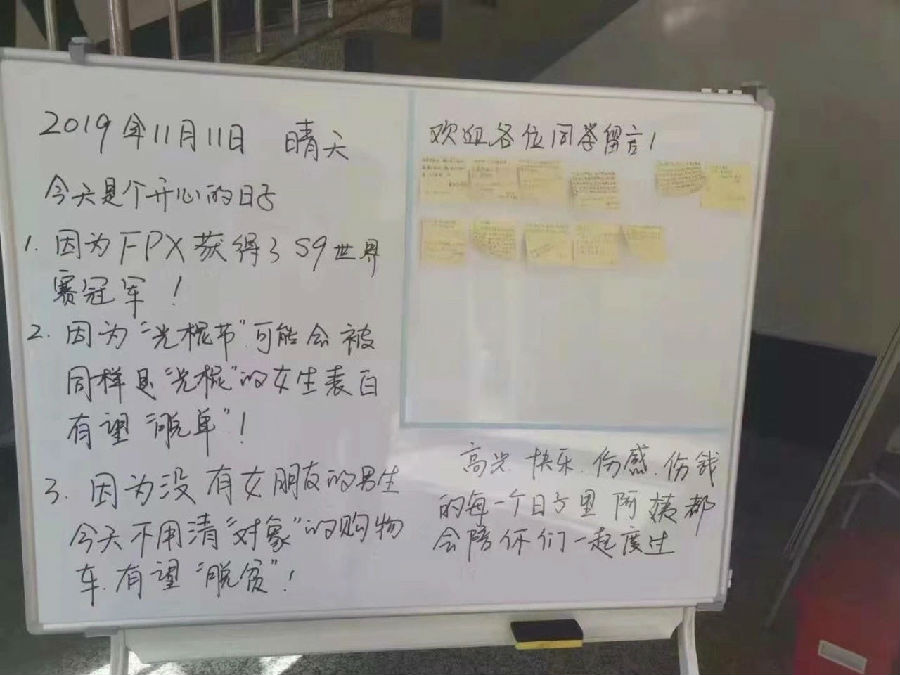 2019年11月11日 晴天
今天是个开心的日子
1. 因为FPX获得了S9世界
赛冠军！
2. 因为"光棍节"可能会被
同样是"光棍"的女生表白
有望"脱单"！
3. 因为没有女朋友的男生
今天不用清"对象"的购物
车.有望"脱贫"！
欢迎各位同学留言！
高光.快乐.伤感.伤钱
的每一个日子里 阿姨都
会陪伴你们一起度过